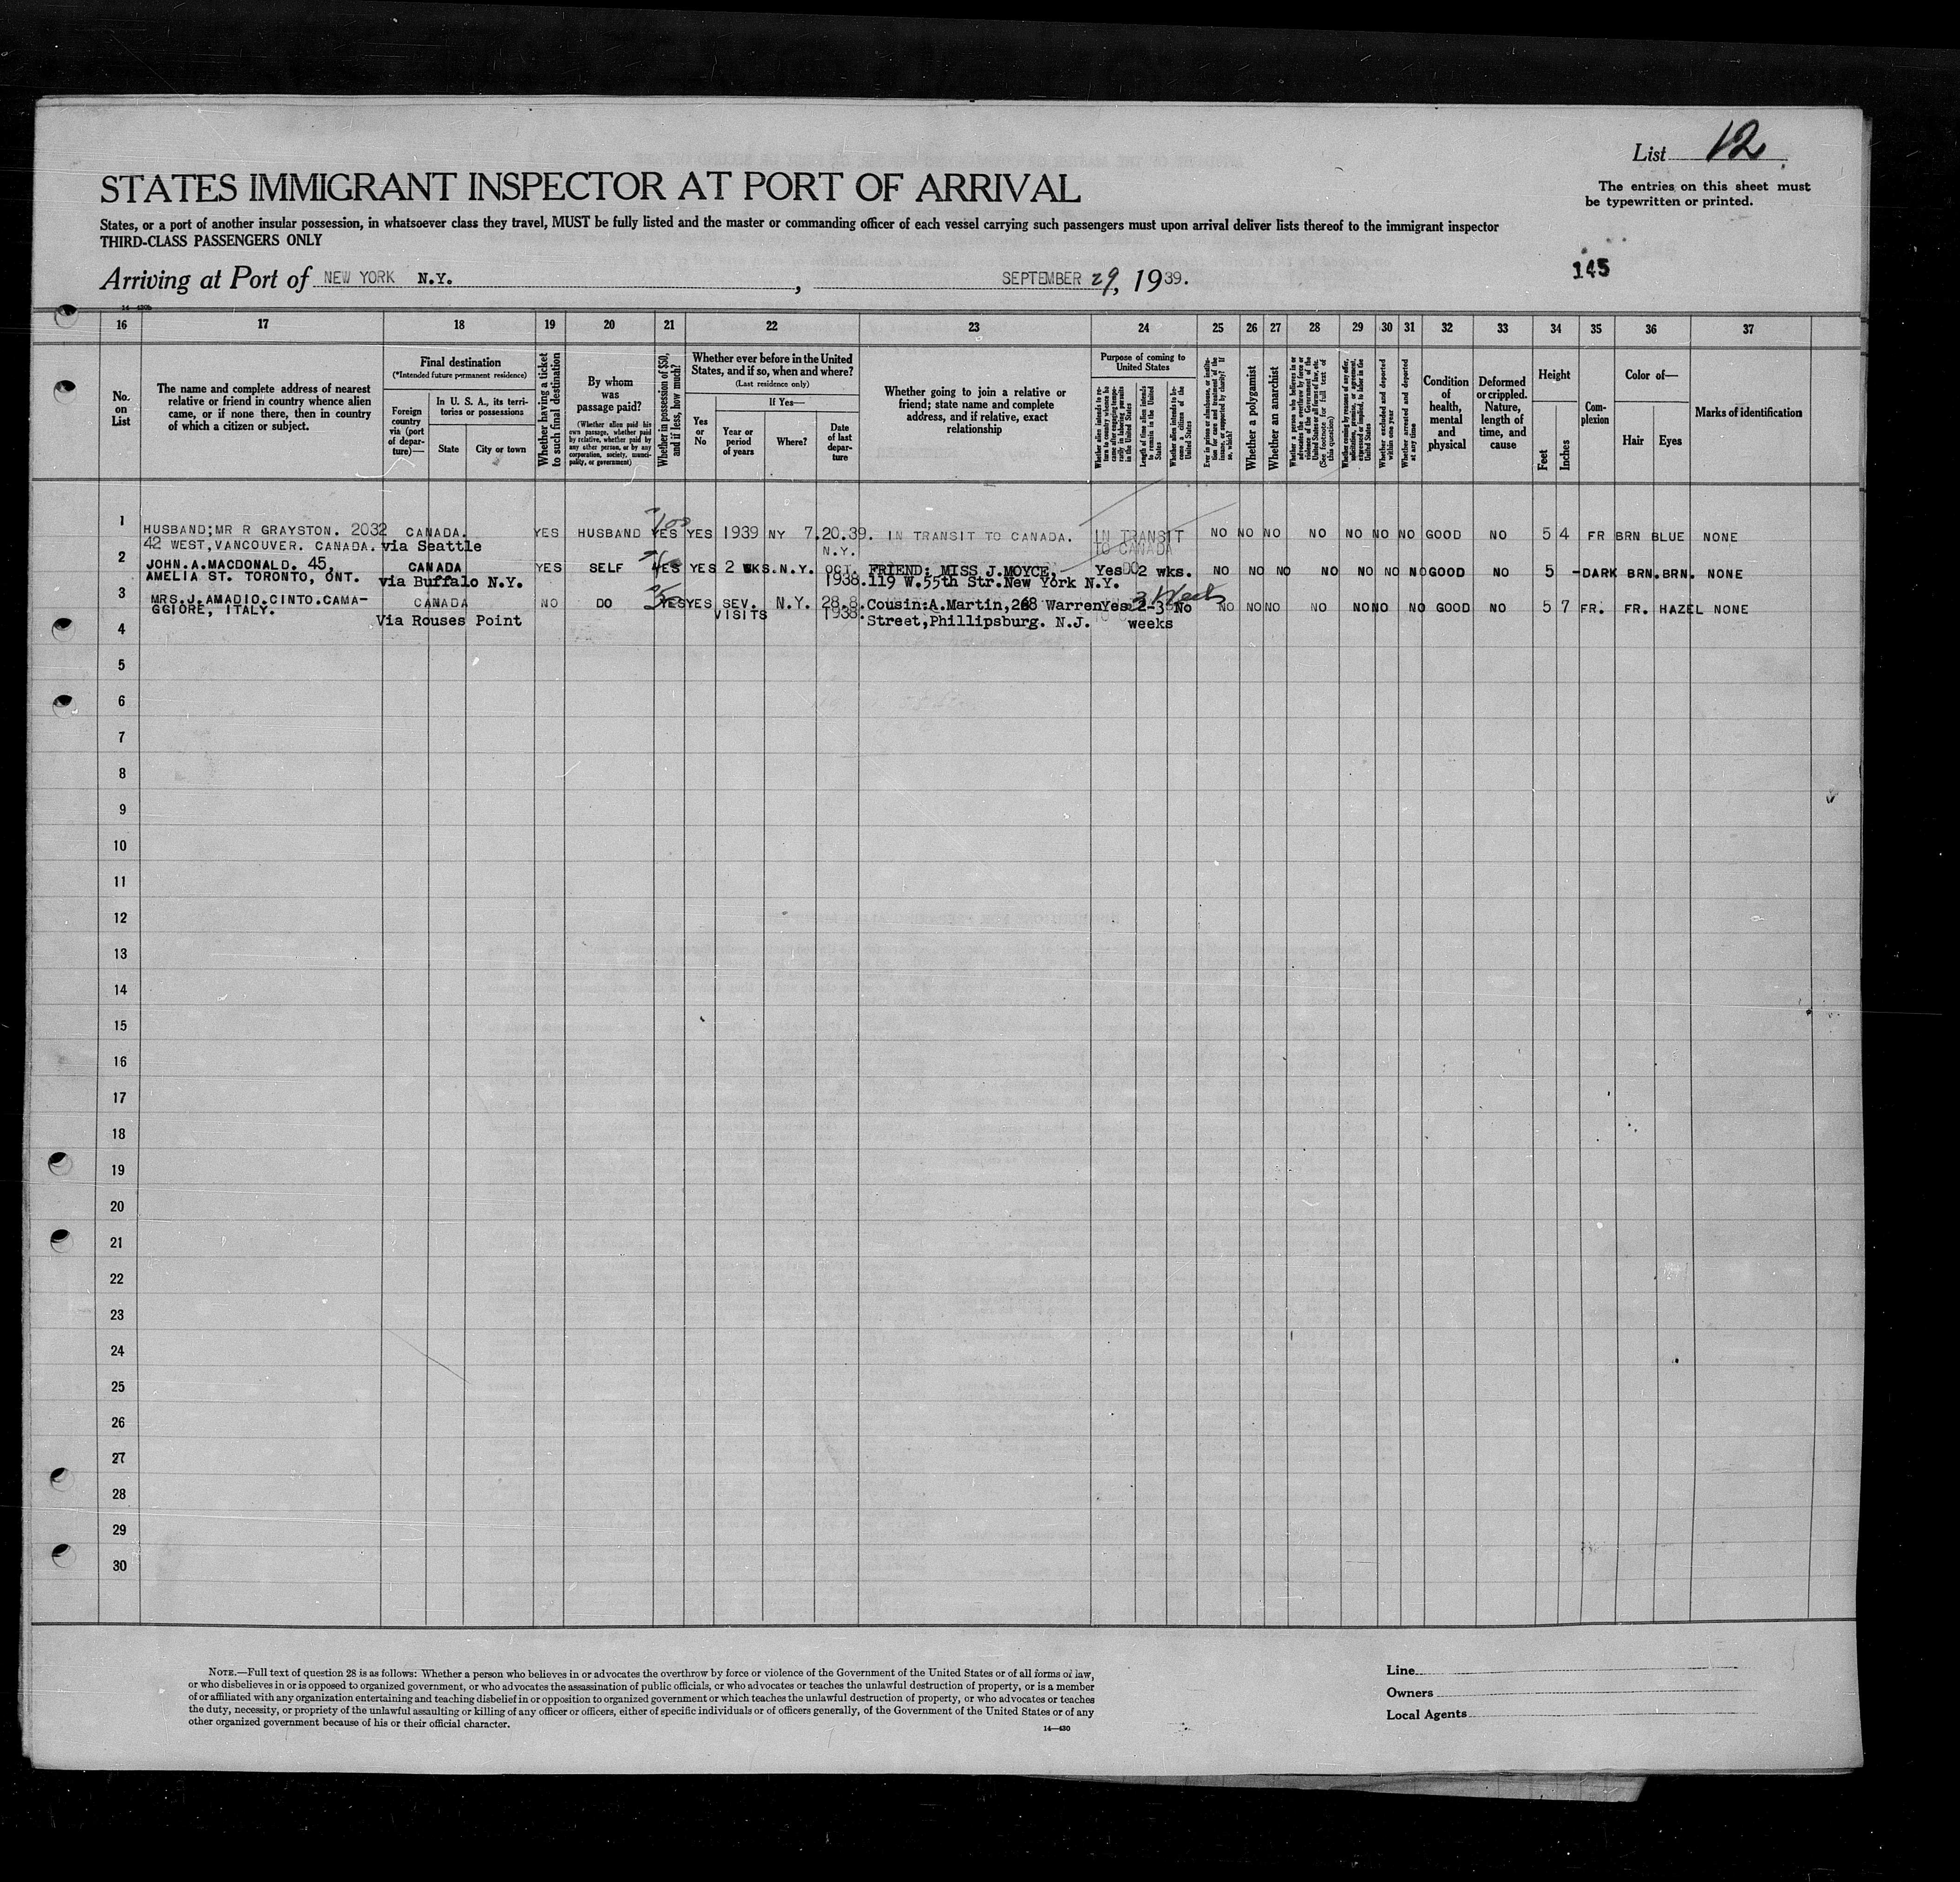 List 12
The entries on this sheet must
be typewritten or printed.
STATES IMMIGRANT INSPECTOR AT PORT OF ARRIVAL
States, or a port of another insular possession, in whatsoever class they travel, MUST be fully listed and the master or commanding officer of each vessel carrying such passengers must upon arrival deliver lists thereof to the immigrant inspector
THIRD-CLASS PASSENGERS ONLY
145
Arriving at Port of NEW YORK N.Y. , SEPTEMBER 29, 1939.
16 17 18 19 20 21 22 23 24 25 26 27 28 29 30 31 32 33 34 35 36 37
No.
on
List
The name and complete address of nearest
relative or friend in country whence alien
came, or if none there, then in country
of which a citizen or subject.
Final destination
(*Intended future permanent residence)
Foreign
country
via (port
of depar-
ture)—
In U. S. A., its terri-
tories or possessions
State
City or town
Whether having a ticket
to such final destination
By whom
was
passage paid?
(Whether alien paid his
own passage, whether paid
by relative, whether paid by
any other person, or by any
corporation, society, munici-
pality, or government)
Whether in possession of $50,
and if less, how much?
Whether ever before in the United
States, and if so, when and where?
(Last residence only)
Yes
or
No
If Yes—
Year or
period
of years
Where?
Date
of last
depar-
ture
Whether going to join a relative or
friend; state name and complete
address, and if relative, exact
relationship
Purpose of coming to
United States
Whether alien intends to re-
turn to country whence he
came after engaging tempo-
rarily in laboring pursuits
in the United States
Length of time alien intends
to remain in the United
States
Whether alien intends to be-
come a citizen of the
United States
Ever in prison or almshouse, or institu-
tion for care and treatment of the
insane, or supported by charity? If
so, which?
Whether a polygamist
Whether an anarchist
Whether a person who believes in or
advocates the overthrow by force or
violence of the Government of the
United States or all forms of law, etc.
(See footnote for full text of
this question)
Whether coming by reason of any offer,
solicitation, promise, or agreement,
expressed or implied, to labor in the
United States
Whether excluded and deported
within one year
Whether arrested and deported
at any time
Condition
of
health,
mental
and
physical
Deformed
or crippled.
Nature,
length of
time, and
cause
Height
Feet
Inches
Com-
plexion
Color of—
Hair
Eyes
Marks of identification
1 HUSBAND;MR R GRAYSTON. 2032 CANADA. YES HUSBAND YES YES 1939 NY 7.20.39. IN TRANSIT TO CANADA. IN TRANSIT NO NO NO NO NO NO NO GOOD NO 5 4 FR BRN BLUE NONE
42 WEST,VANCOUVER. CANADA. via Seattle N.Y. TO CANADA
2 JOHN.A.MACDONALD. 45, CANADA YES SELF YES YES 2 WKS. N.Y. OCT. FRIEND; MISS J.MOYCE, Yes DO 2 wks. NO NO NO NO NO NO NO GOOD NO 5 - DARK BRN. BRN. NONE
AMELIA ST. TORONTO, ONT. via Buffalo N.Y. 1938. 119 W.55th Str.New York N.Y.
3 Weeks
3 MRS.J.AMADIO.CINTO.CAMA- CANADA NO DO YES YES SEV. N.Y. 28.8. Cousin:A.Martin,268 Warren Yes 2-3 No NO NO NO NO NO NO NO GOOD NO 5 7 FR. FR. HAZEL NONE
GGIORE, ITALY. Via Rouses Point VISITS 1938. Street,Phillipsburg. N.J. weeks
4
5
6
7
8
9
10
11
12
13
14
15
16
17
18
19
20
21
22
23
24
25
26
27
28
29
30
NOTE.—Full text of question 28 is as follows: Whether a person who believes in or advocates the overthrow by force or violence of the Government of the United States or of all forms of law,
or who disbelieves in or is opposed to organized government, or who advocates the assassination of public officials, or who advocates or teaches the unlawful destruction of property, or is a member
of or affiliated with any organization entertaining and teaching disbelief in or opposition to organized government or which teaches the unlawful destruction of property, or who advocates or teaches
the duty, necessity, or propriety of the unlawful assaulting or killing of any officer or officers, either of specific individuals or of officers generally, of the Government of the United States or of any
other organized government because of his or their official character.
14—430
Line
Owners
Local Agents